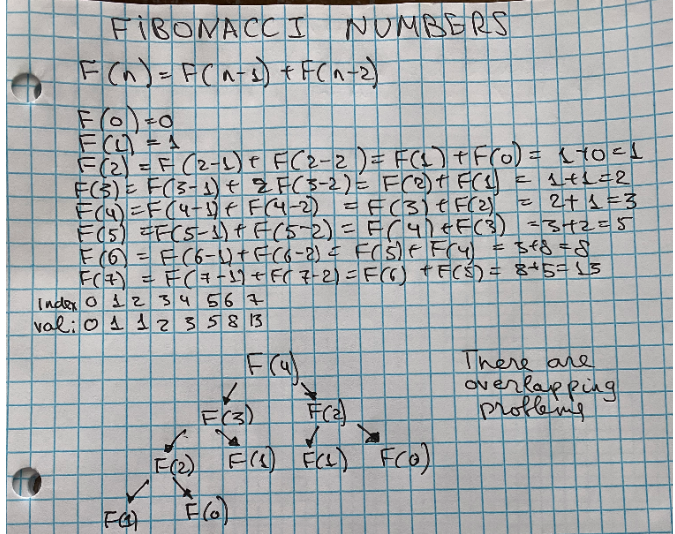 FIBONACCI NUMBERS
F(n) = F(n-1) + F(n-2)
F(0)=0
F(1)=1
F(2) = F(2-1) + F(2-2) = F(1) + F(0) = 1+0=1
F(3) = F(3-1) + 2F(3-2) = F(2) + F(1) = 1+1=2
F(4) = F(4-1) + F(4-2) = F(3) + F(2) = 2+1=3
F(5) = F(5-1) + F(5-2) = F(4) + F(3) = 3+2=5
F(6) = F(6-1) + F(6-2) = F(5) + F(4) = 3+8=8
F(7) = F(7-1) + F(7-2) = F(6) + F(5) = 8+5=13
Index 0 1 2 3 4 5 6 7
val: 0 1 1 2 3 5 8 13
F(4)
There are
overlapping
problems
F(3) F(2)
F(2) F(1) F(1) F(0)
F(1) F(0)